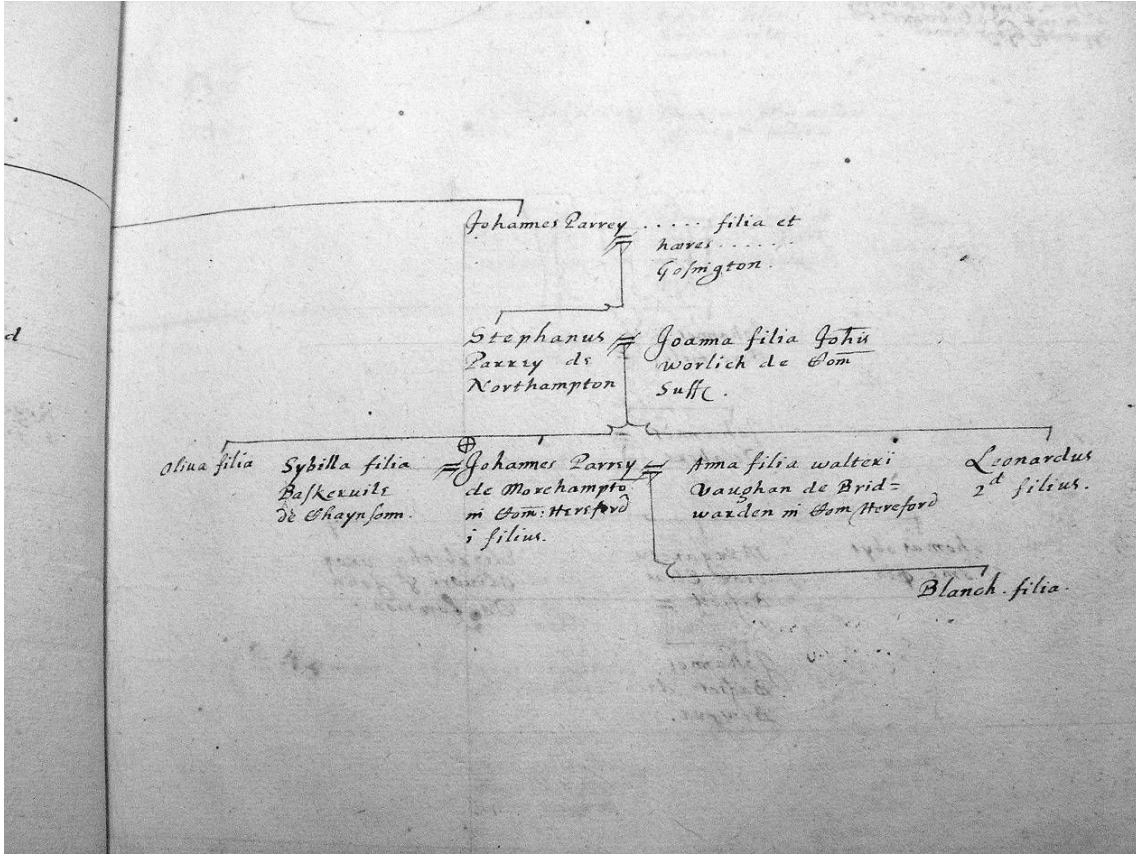 d
Johannes Parrey ..... filia et
hæres ......
Gosington.
Stephanus
Parrey de
Northampton
Joanna filia Johīs
worlich de Com̄
Suff.
Oliua filia
Sybilla filia
Baskeruile
de Chaynsom.
Johannes Parrey
de Morehampto
in Com̄: Hereford
i filius.
Anna filia walteri
Vaughan de Brid=
warden in Com Hereford
Leonardus
2d filius.
Blanch. filia.